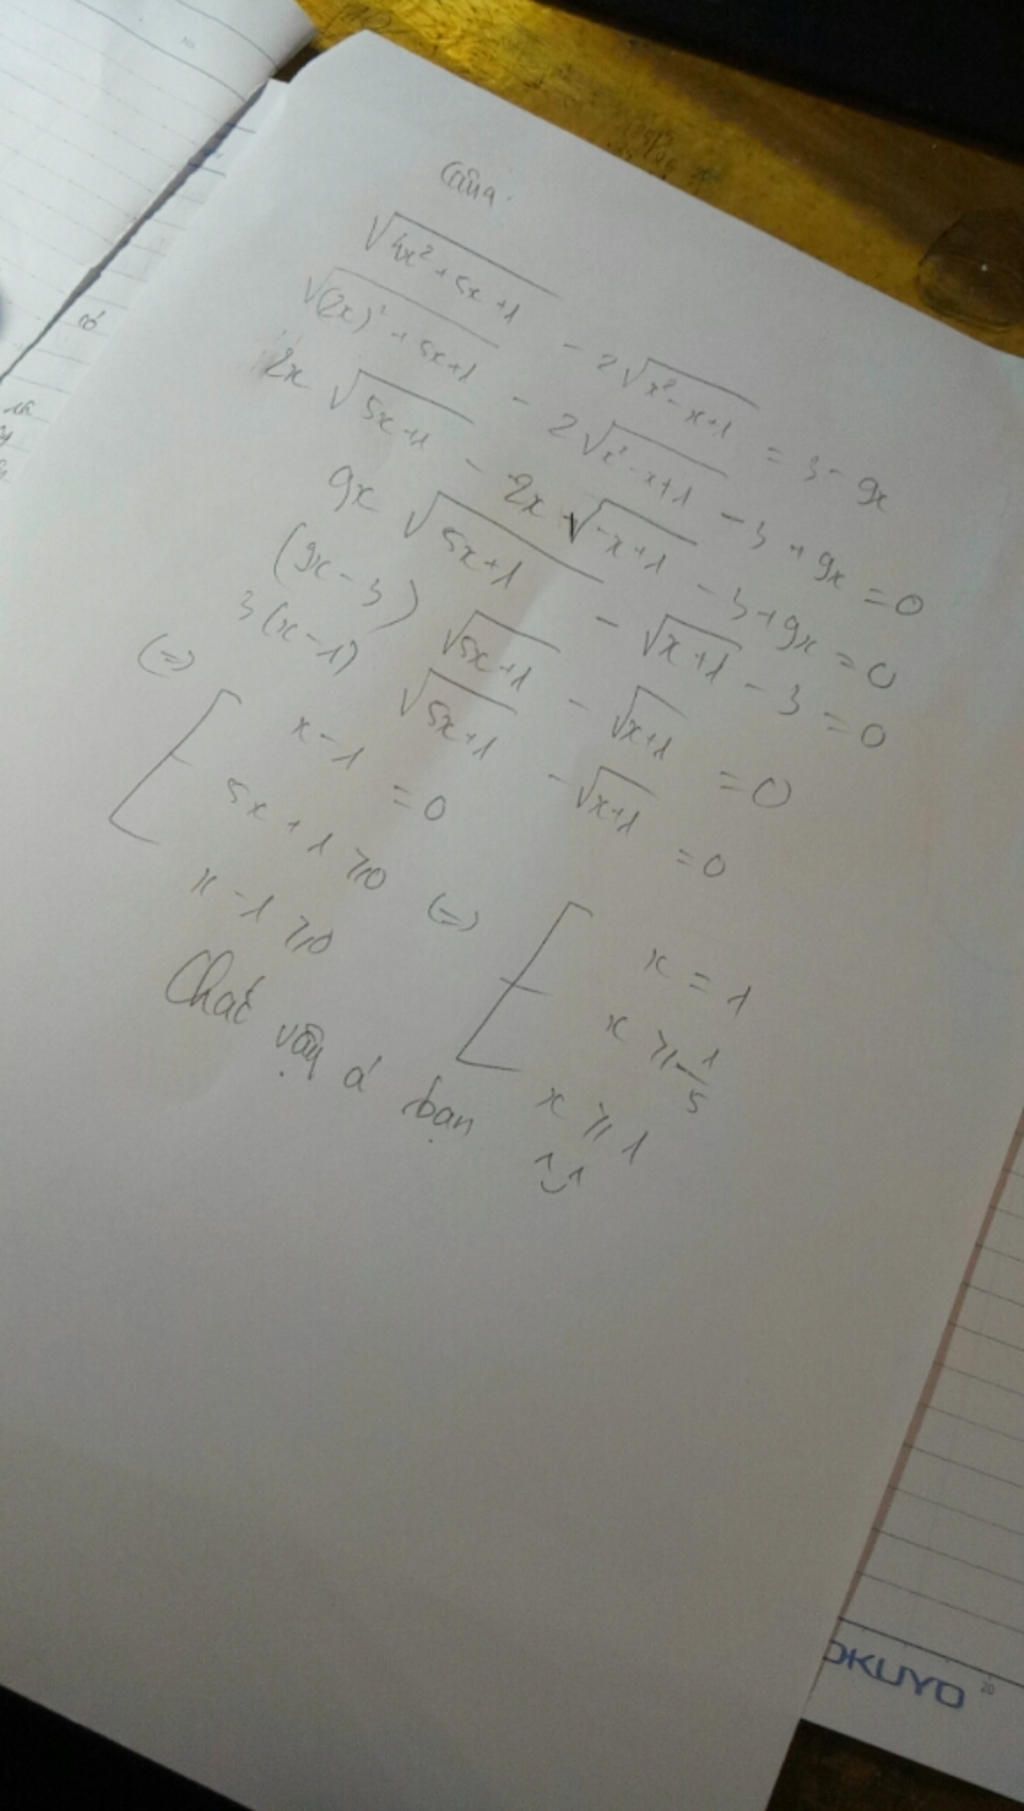 Câu a.
√(4x² + 5x + 1) - 2√(x² - x + 1) = 3 - 9x
√((2x)² + 5x + 1) - 2√(x² - x + 1) - 3 + 9x = 0
2x √(5x + 1) - 2x √(-x + 1) - 3 + 9x = 0
9x √(5x + 1) - √(x + 1) - 3 = 0
(9x - 3) √(5x + 1) - √(x + 1) = 0
3(x - 1) √(5x + 1) - √(x + 1) = 0
(=) [ x - 1 = 0
5x + 1 ⩾ 0 (=) [ x = 1
x - 1 ⩾ 0
x ⩾ -1/5
x ⩾ 1
Chắc vậy á bạn
OKUYO
20